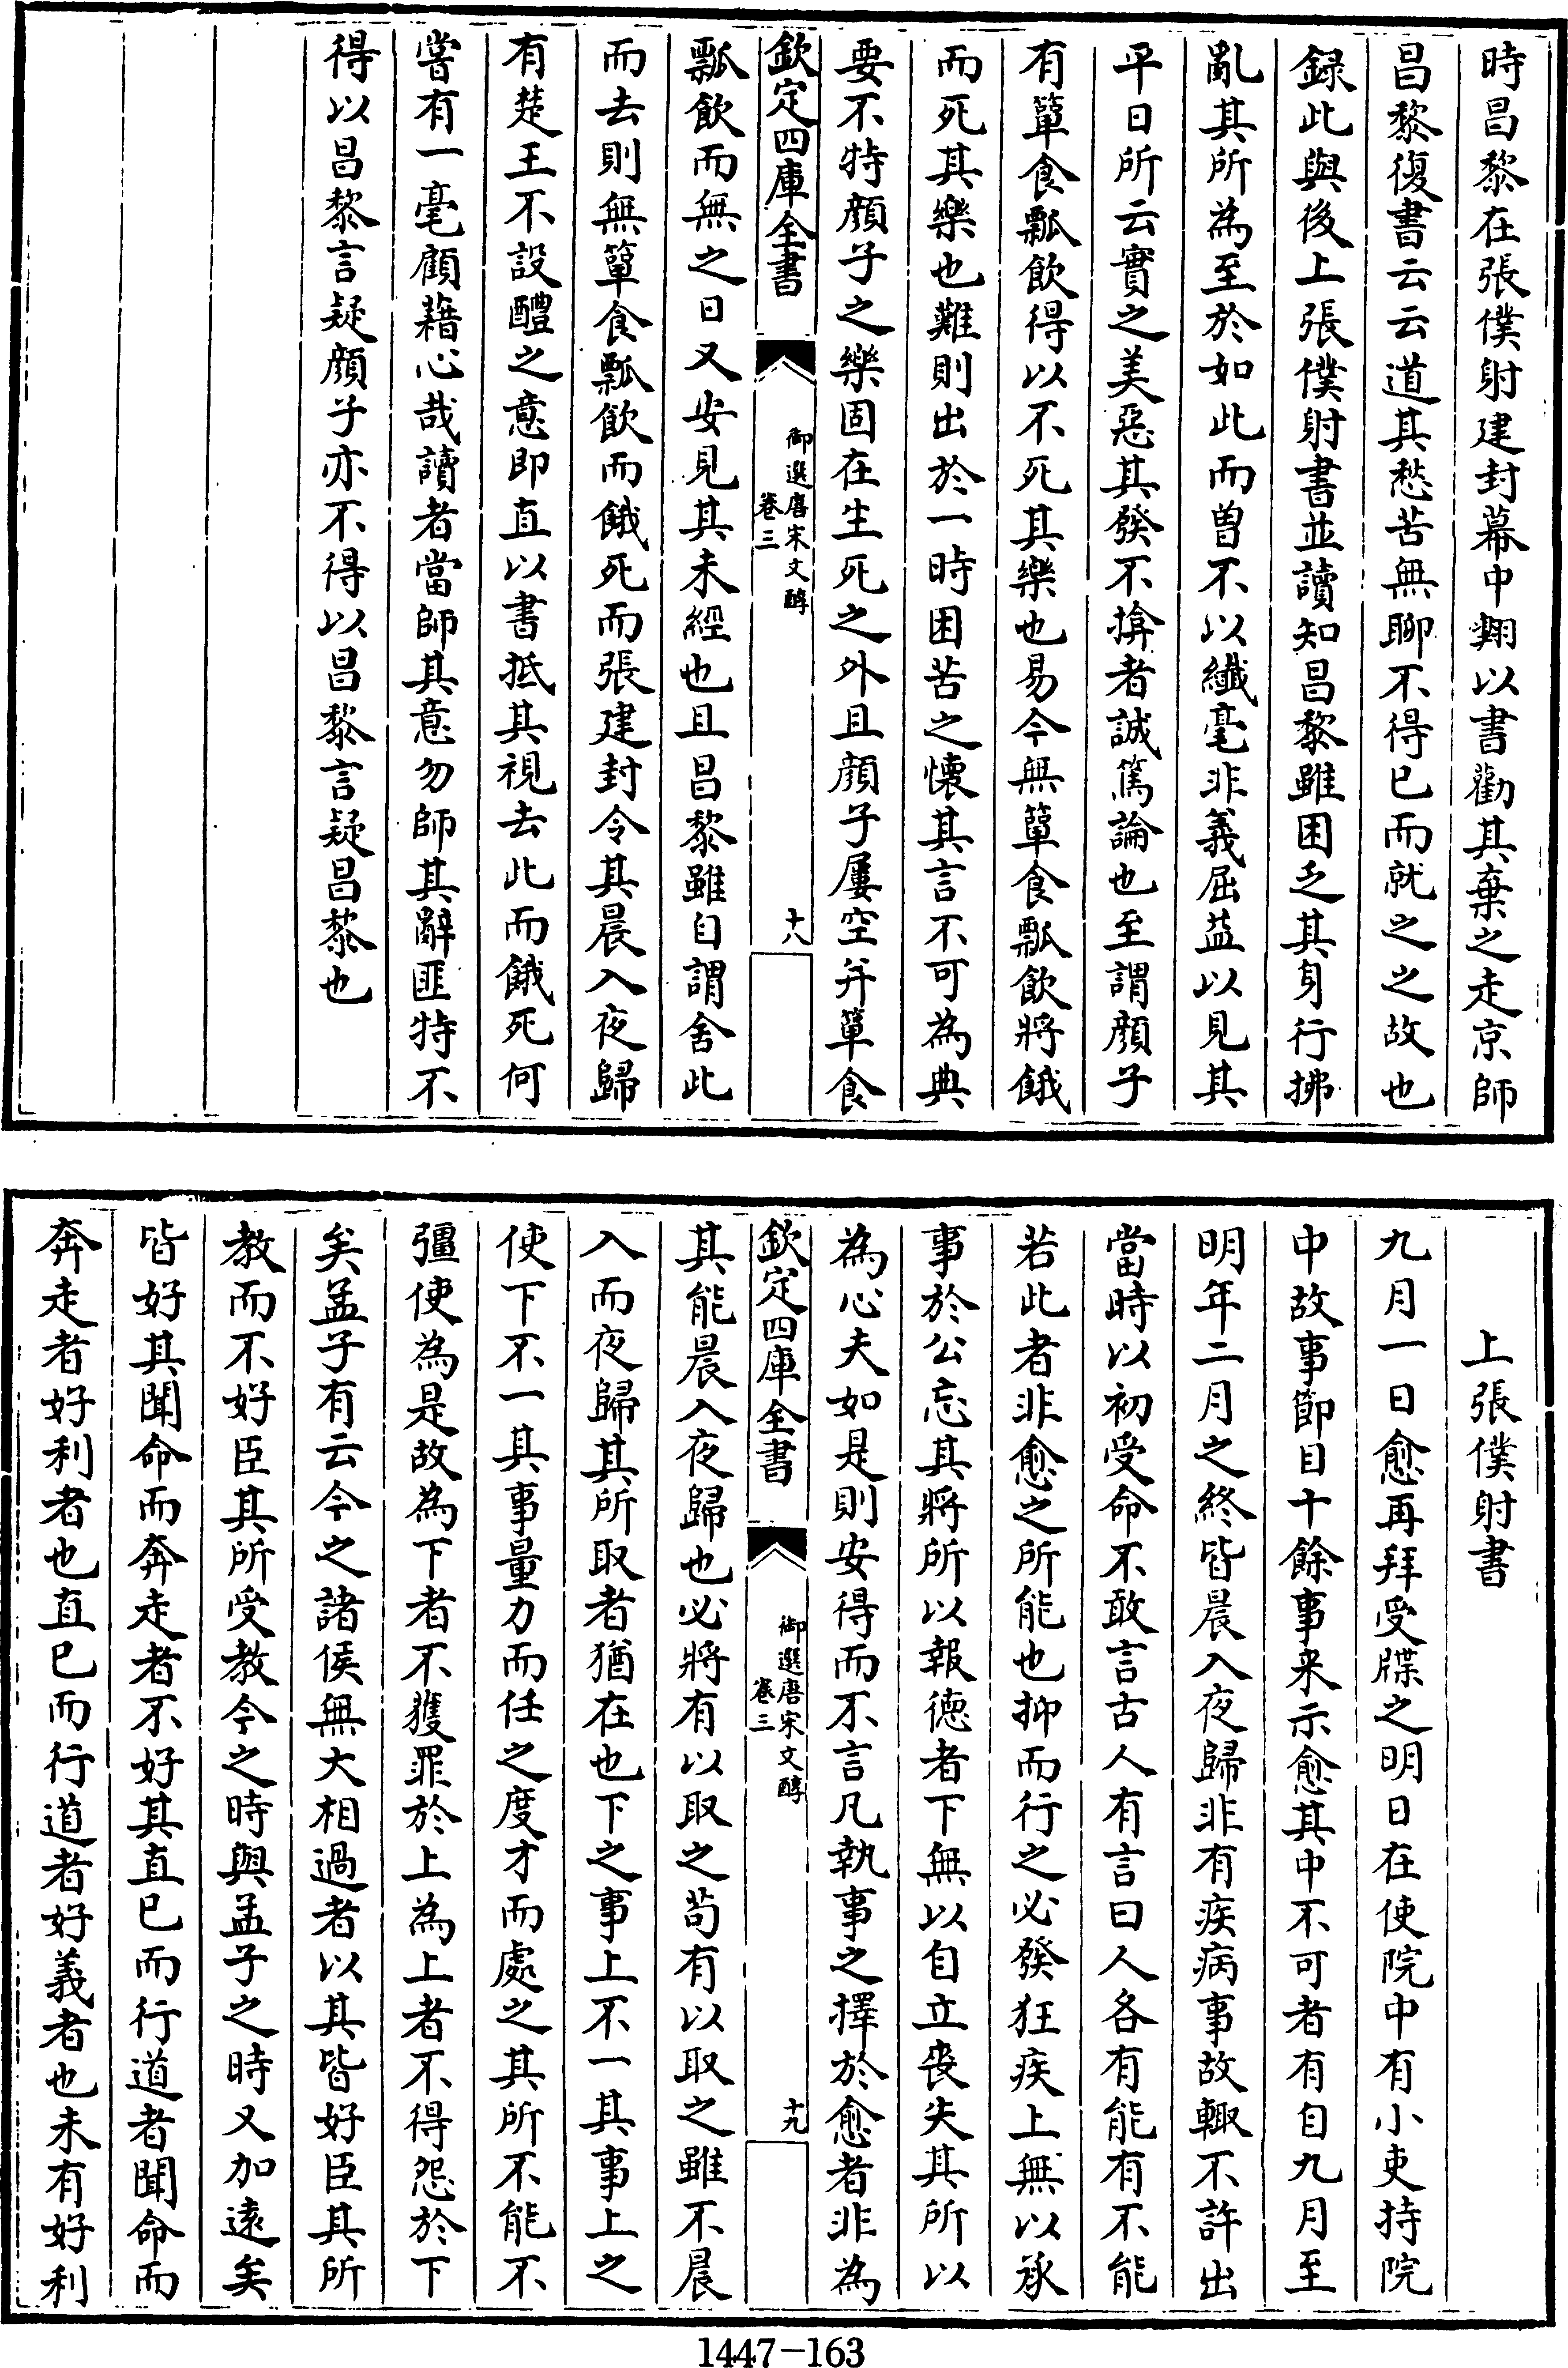 時昌黎在張僕射建封幕中翺以書勸其棄之走京師
昌黎復書云云道其愁苦無聊不得已而就之之故也
録此與後上張僕射書並讀知昌黎雖困乏其身行拂
亂其所為至於如此而曽不以纎毫非義屈益以見其
平日所云實之美惡其發不揜者誠篤論也至謂顔子
有簞食瓢飲得以不死其樂也易今無簞食瓢飲將餓
而死其樂也難則出於一時困苦之懐其言不可為典
要不特顔子之樂固在生死之外且顔子屢空并簞食
欽定四庫全書
御選唐宋文醇
卷三
十八
瓢飲而無之日又安見其未經也且昌黎雖自謂舍此
而去則無簞食瓢飲而餓死而張建封令其晨入夜歸
有楚王不設醴之意即直以書抵其視去此而餓死何
嘗有一毫顧藉心哉讀者當師其意勿師其辭匪特不
得以昌黎言疑顔子亦不得以昌黎言疑昌黎也
上張僕射書
九月一日愈再拜受牒之明日在使院中有小吏持院
中故事節目十餘事来示愈其中不可者有自九月至
明年二月之終皆晨入夜歸非有疾病事故輙不許出
當時以初受命不敢言古人有言曰人各有能有不能
若此者非愈之所能也抑而行之必發狂疾上無以承
事於公忘其將所以報徳者下無以自立喪失其所以
為心夫如是則安得而不言凡執事之擇於愈者非為
欽定四庫全書
御選唐宋文醇
卷三
十九
其能晨入夜歸也必將有以取之茍有以取之雖不晨
入而夜歸其所取者猶在也下之事上不一其事上之
使下不一其事量力而任之度才而處之其所不能不
彊使為是故為下者不獲罪於上為上者不得怨於下
矣孟子有云今之諸侯無大相過者以其皆好臣其所
教而不好臣其所受教今之時與孟子之時又加逺矣
皆好其聞命而奔走者不好其直已而行道者聞命而
奔走者好利者也直已而行道者好義者也未有好利
1447-163